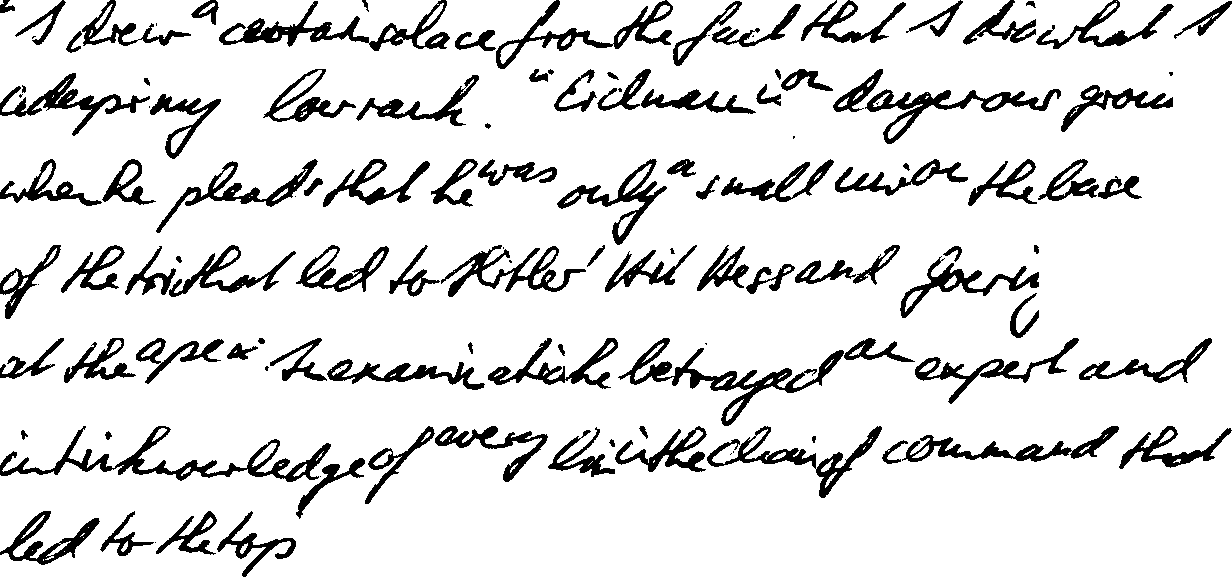 "I drew a certain solace from the fact that I did what I
did despite my low rank. "Eichmann is on dangerous ground
when he pleads that he was only a small man on the base
of the tri that led to Hitler' Hess and Goering
at the apex. In examination he betrayed an expert and
intim knowledge of every link in the chain of command that
led to the top